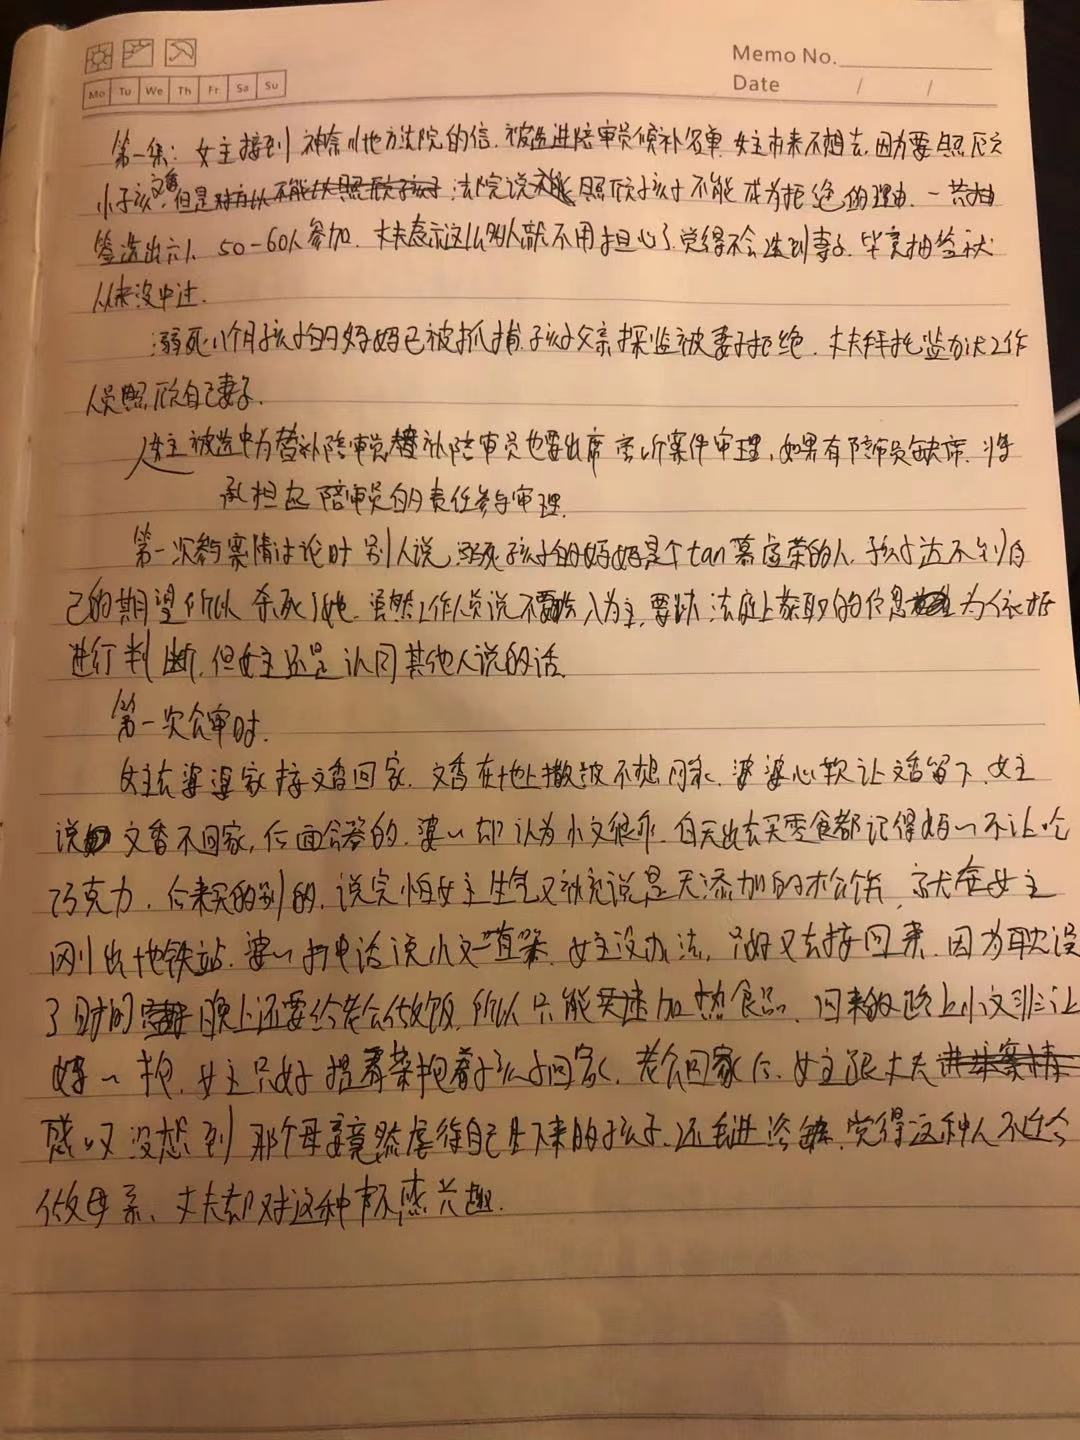 Memo No.
Mo Tu We Th Fr Sa Su
Date / /
第一集：女主接到神奈川地方法院的信.被选进陪审员候补名单.女主本来不想去,因为要照顾
小孩文香,但是法院说照顾孩子不能成为拒绝的理由.一共抽
签选出六人 50-60人参加.丈夫表示这么多人就不用担心了.觉得不会选到妻子.毕竟抽签
从来没中过.
溺死八个月孩子的妈妈已被抓捕.孩子父亲探监被妻子拒绝.丈夫拜托监办工作
人员照顾自己妻子.
女主被选中为替补陪审员,替补陪审员也要出席旁听案件审理,如果有陪审员缺席.将
承担起陪审员的责任参与审理.
第一次参与案情讨论时 别人说,溺死孩子的妈妈是个tan慕虚荣的人.孩子达不到自
己的期望所以杀死了她.虽然工作人员说不要入为主,要以法庭上获取的信息为依据
进行判断.但女主还是认同其他人说的话.
第一次公审时.
女主去婆婆家接文香回家.文香在地上撒泼不想回家.婆婆心软让文香留下.女主
说文香不回家,后面会登的.婆〃却认为小文很乖.白天出去买零食都记得妈〃不让吃
巧克力.后来买的别的.说完怕女主生气又说是无添加的.女主
刚出地铁站.婆〃打电话说小文一直哭.女主没办法,只好又去接回来.因为耽误
了时间晚上还要给老公做饭.所以只能买速加热食品.回来的路上小文非让
妈〃抱.女主只好提着菜抱着孩子回家.老公回家后.女主跟丈夫
感叹没想到那个母亲竟然虐待自己生下来的孩子.还丢进浴缸.觉得这种人不适合
做母亲、丈夫却对这种不感兴趣.